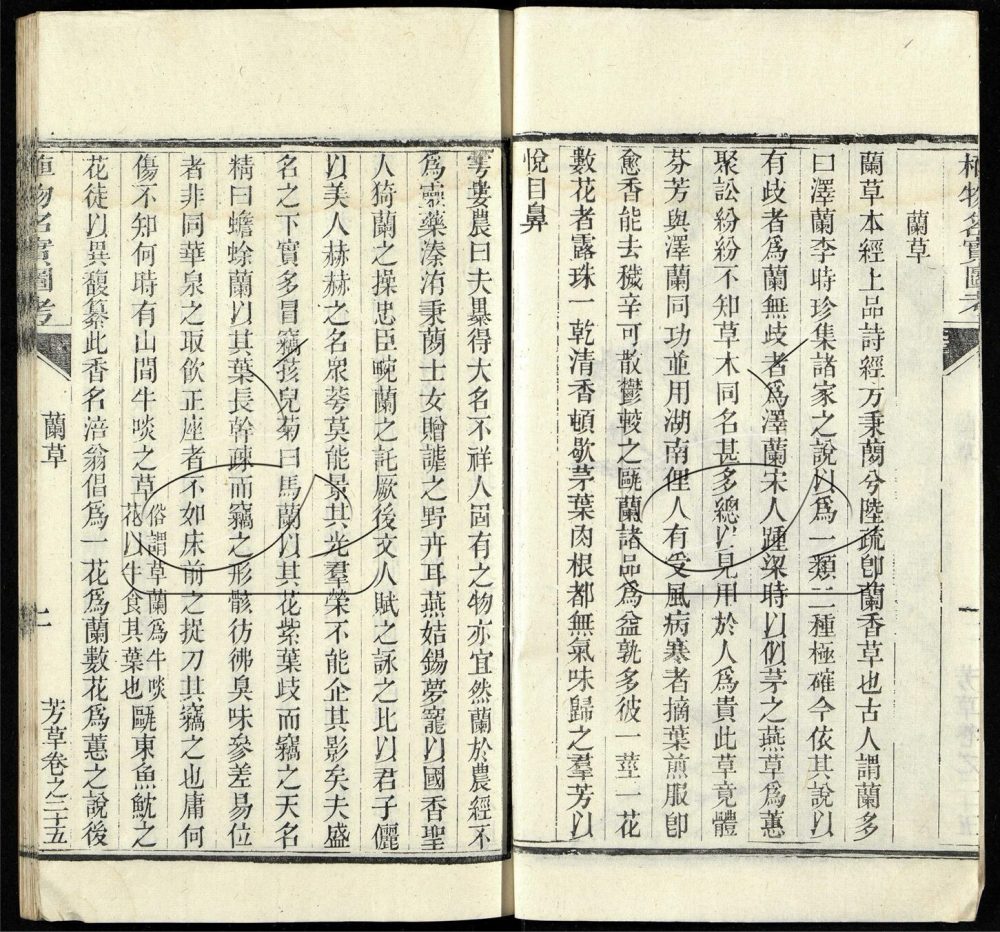 植物名實圖考
蘭草
蘭草本經上品詩經方秉蕑兮陸疏卽蘭香草也古人謂蘭多
曰澤蘭李時珍集諸家之說以爲一類二種極確今依其說以
有歧者爲蘭無歧者爲澤蘭宋人踵梁時以似茅之燕草爲蕙
聚訟紛紛不知草木同名甚多總以見用於人爲貴此草竟體
芬芳與澤蘭同功並用湖南俚人有受風病寒者摘葉煎服卽
愈香能去穢辛可散鬱較之甌蘭諸品爲益孰多彼一莖一花
數花者露珠一乾清香頓歇茅葉肉根都無氣味歸之羣芳以
悅目鼻
雩婁農曰夫暴得大名不祥人固有之物亦宜然蘭於農經不
爲靈藥溱洧秉蕑士女贈謔之野卉耳燕姞錫夢寵以國香聖
人猗蘭之操忠臣畹蘭之託厥後文人賦之詠之比以君子儷
以美人赫赫之名眾蕚莫能景其光羣榮不能企其影矣夫盛
名之下實多冒竊孩兒菊曰馬蘭以其花紫葉歧而竊之天名
精曰蟾蜍蘭以其葉長幹疎而竊之形骸彷彿臭味參差易位
者非同華泉之取飲正座者不如床前之捉刀其竊之也庸何
傷不知何時有山間牛啖之草俗謂草蘭爲牛啖花以牛食其葉也甌東魚魫之
花徒以異馥纂此香名涪翁倡爲一花爲蘭數花爲蕙之說後
植物名實圖考
蘭草
上
芳草卷之二十五